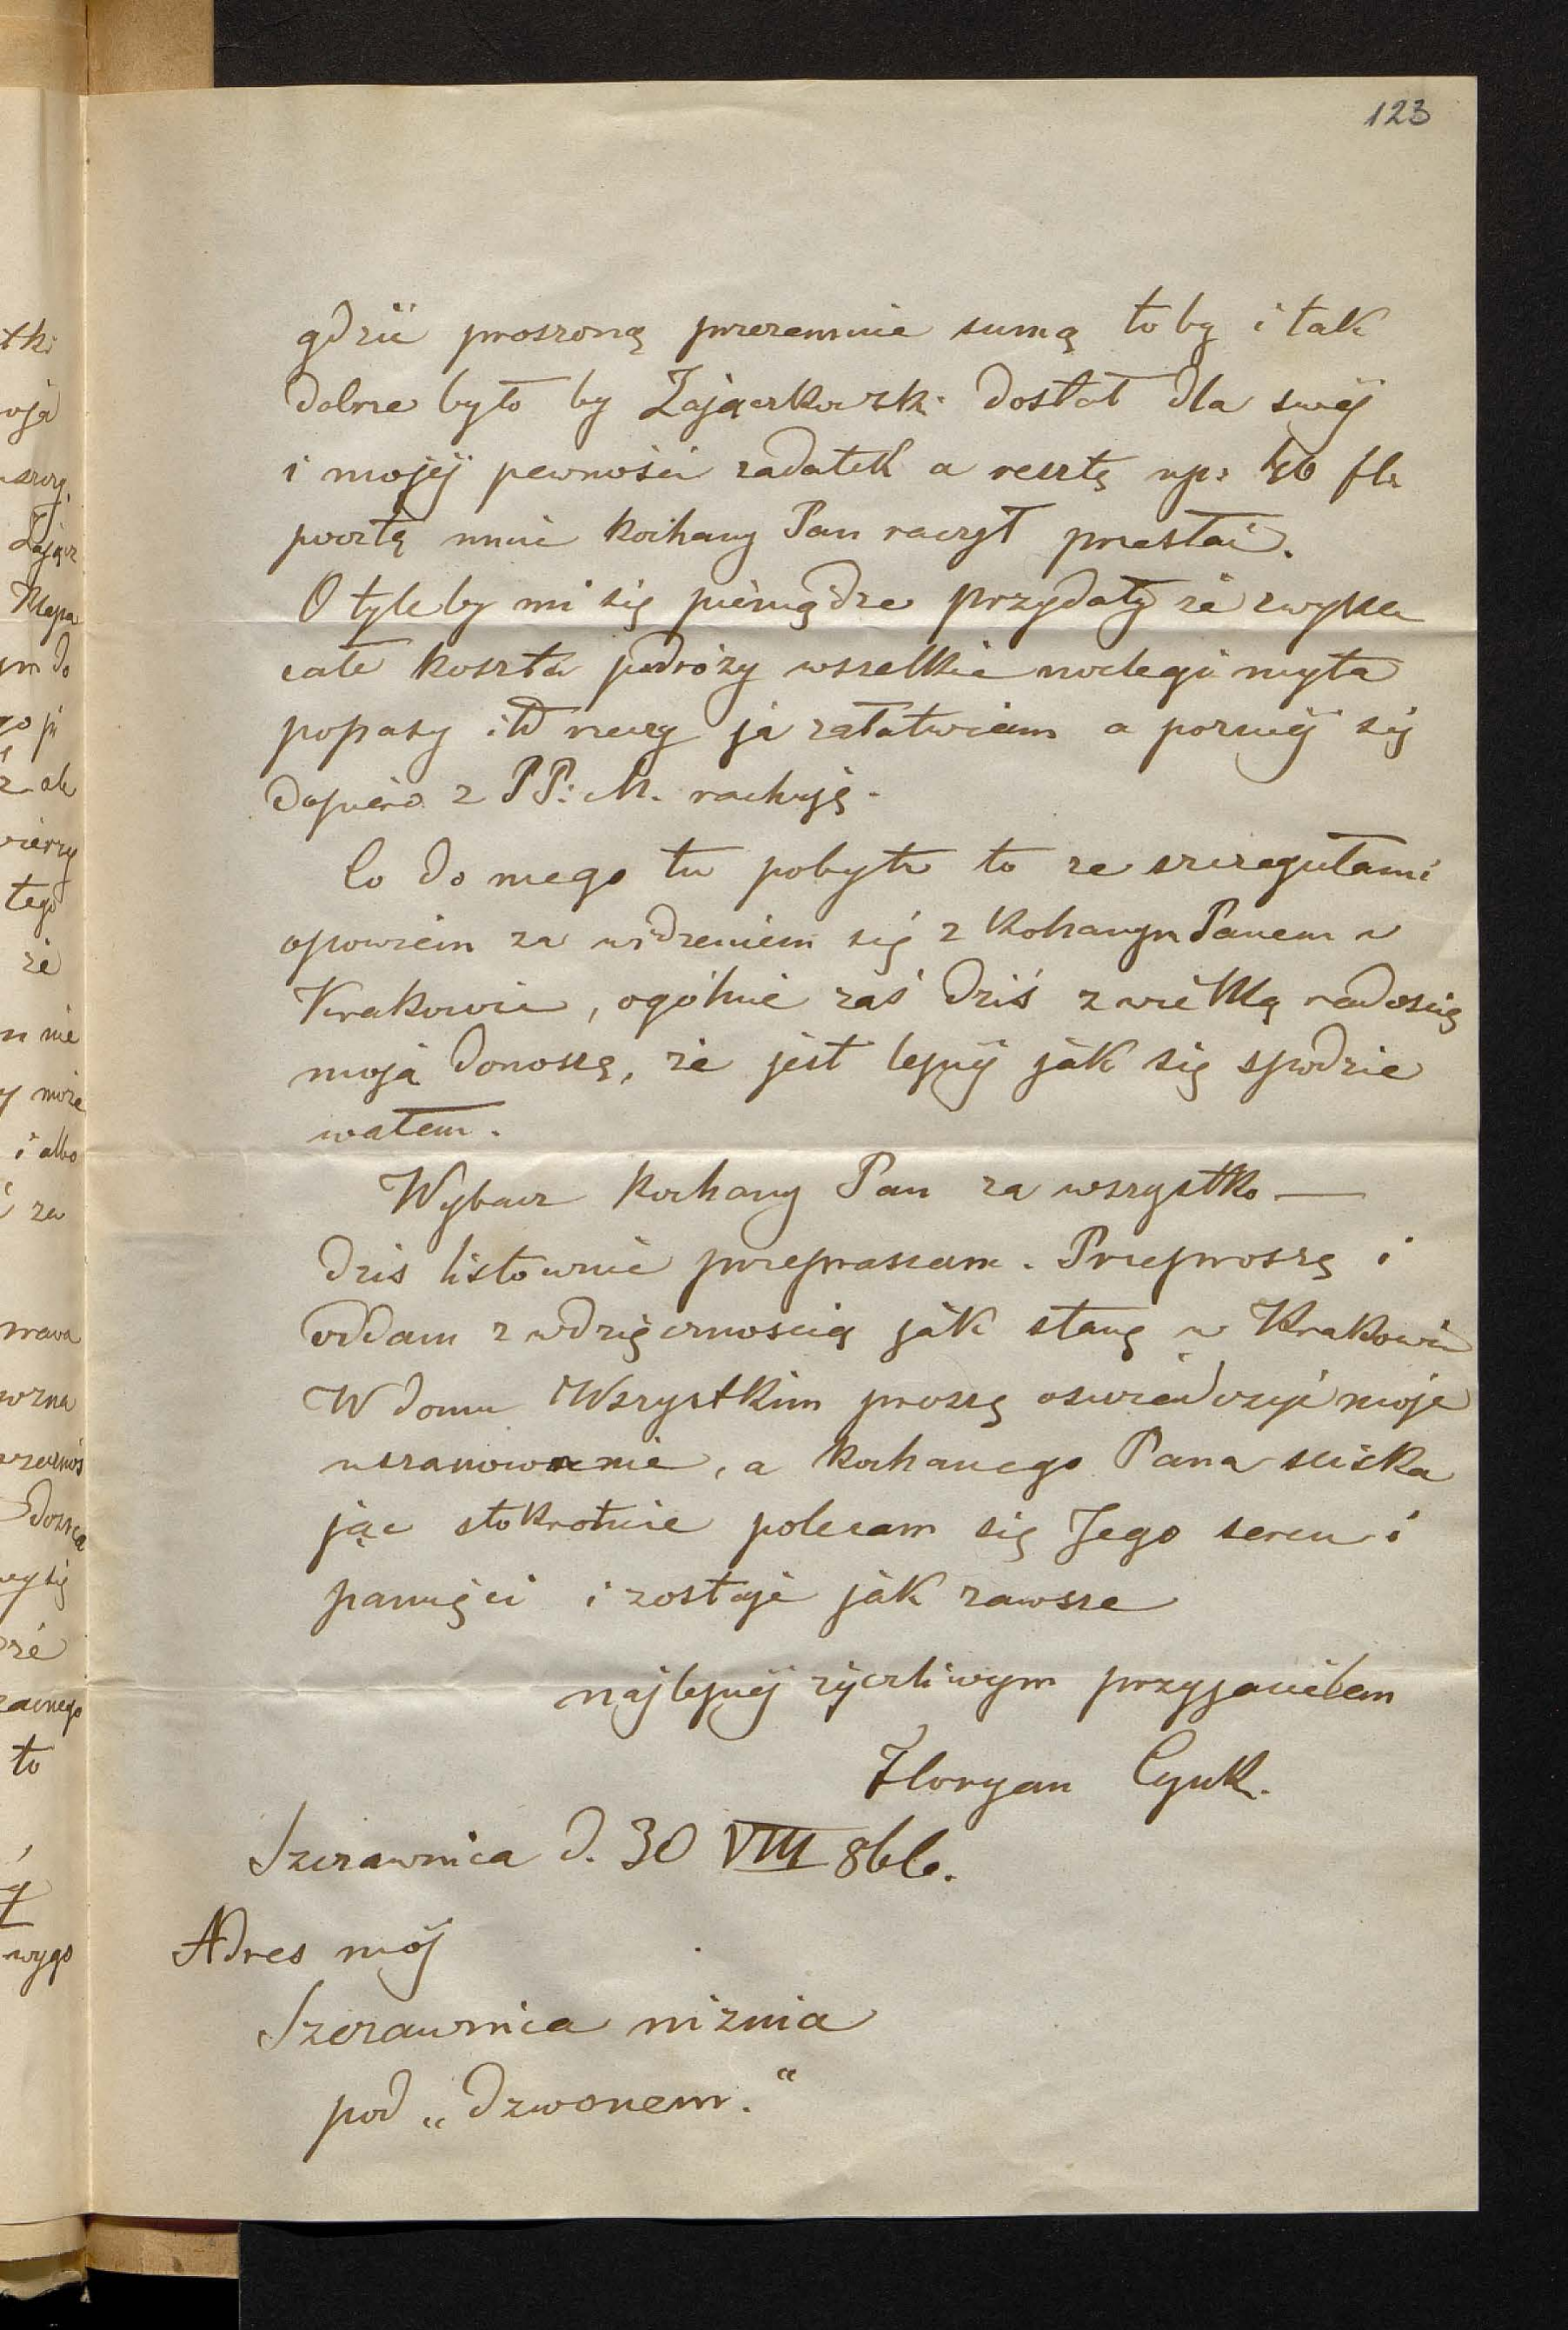 123
gdzie proszoną przezemnie sumą to by i tak
dobrze było by Zajączkowsk: dostał dla swéj
i mojéj pewności zadatek a resztę np: 40 flr
pocztą mnie kochany Pan raczył przesłać.
O tyleby mi się pieniądze przydały że zwykle
całe koszta podróży wszelkie noclegi myta
popasy itd rzeczy ja załatwiam a poźnéj się
dopiero z PP: M. rachuję.
Co do mego tu pobytu to ze szczegułami
opowiem za widzeniem się z Kohanym Panem w
Krakowie, ogólnie zaś dziś z wielką radością
moją donoszę, że jest lepiéj jak się spodzie
wałem.
Wybacz kochany Pan za wszystko —
dzis listownie przepraszam. Przeproszę i
oddam z wdzięcznoscią jak stanę w Krakowie
W domu Wszystkim proszę oswiadczyć moje
uszanowanie, a kochanego Pana sciska
jąc stokrotnie polecam się Jego sercu i
pamięci i zostaję jak zawsze
najlepiéj życzliwym przyjacielem
Floryan Cynk.
Szczawnica d. 30 VIII 866.
Adres mój
Szczawnica niznia
pod „Dzwonem."
tki
Zającz
Klepa
ym do
wierzy
tego
że
n nie
może
i albo
za
prawa
to